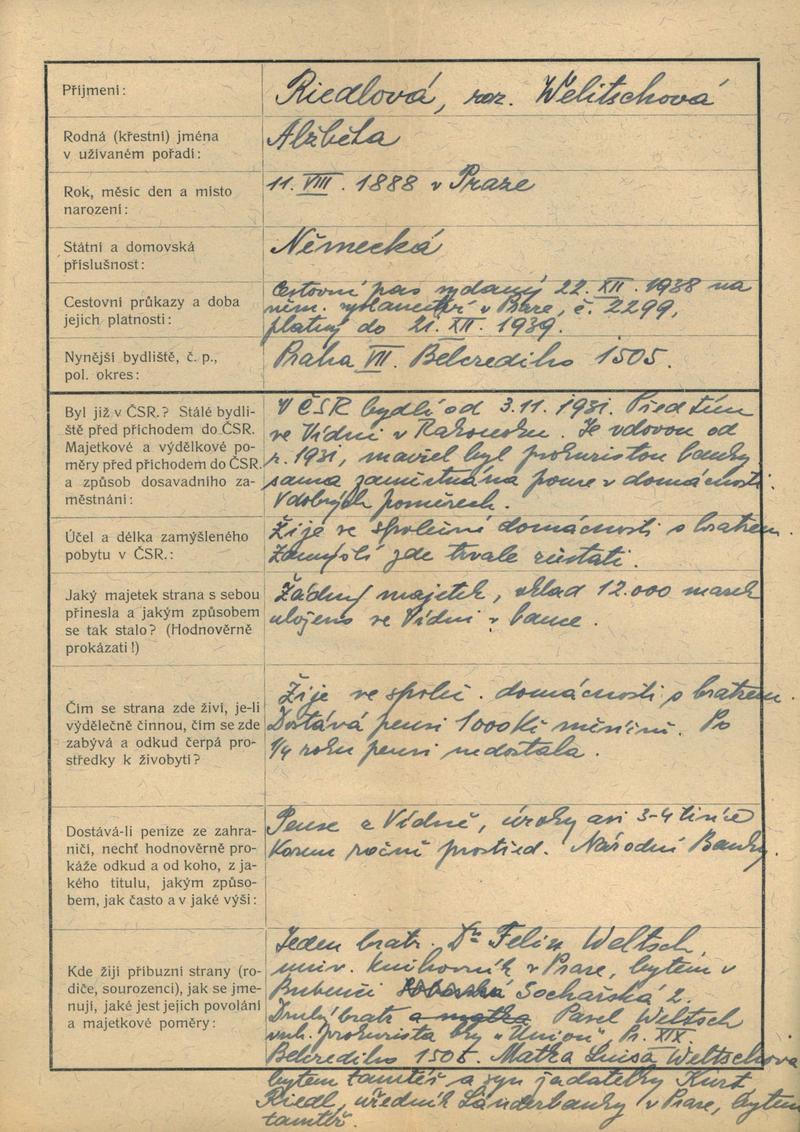 Příjmení:
Riedlová, roz. Welitschová
Rodná (křestní) jména
v užívaném pořadí:
Alžběta
Rok, měsíc den a místo
narození:
11. VIII. 1888 v Praze
Státní a domovská
příslušnost:
Německá
Cestovní průkazy a doba
jejich platnosti:
Cestovní pas vydaný 22. XII. 1938 na
něm. vyslanectví v Praze, č. 2299,
platný do 21. XII. 1939.
Nynější bydliště, č. p.,
pol. okres:
Praha VII. Belcrediho 1505.
Byl již v ČSR.? Stálé bydli-
ště před příchodem do ČSR.
Majetkové a výdělkové po-
měry před příchodem do ČSR.
a způsob dosavadního za-
městnání:
V ČSR bydlí od 3.11.1931. Předtím
ve Vídni v Rakousku. Je vdovou od
r. 1931, manžel byl prokuristou banky
sama zaměstnána pouze v domácnosti.
V dobrých poměrech.
Účel a délka zamýšleného
pobytu v ČSR.:
Žije ve společné domácnosti s bratrem.
Zamýšlí zde trvale zůstati.
Jaký majetek strana s sebou
přinesla a jakým způsobem
se tak stalo? (Hodnověrně
prokázati!)
Žádný majetek, vklad 12.000 marek
uloženo ve Vídni v bance.
Čím se strana zde živí, je-li
výdělečně činnou, čím se zde
zabývá a odkud čerpá pro-
středky k živobytí?
Žije ve společ. domácnosti s bratrem.
Dostává pensi 1000 Kč měsíčně. Po
1/4 roku pensi nedostala.
Dostává-li peníze ze zahra-
ničí, nechť hodnověrně pro-
káže odkud a od koho, z ja-
kého titulu, jakým způso-
bem, jak často a v jaké výši:
Pense z Vídně, úroky asi 3-4 tisíce
Korun ročně prostřed. Národní Banky.
Kde žijí příbuzní strany (ro-
diče, sourozenci), jak se jme-
nují, jaké jest jejich povolání
a majetkové poměry:
Jeden bratr. Dr Felix Weltsch,
univ. knihovník v Praze, bytem v
Bubenči Sochařská 2.
Druhý bratr a matka Pavel Weltsch
prokurista fy "Union" Pr. XIX.
Belcrediho 1505. Matka Luisa Weltschová
bytem tamtéž a syn žadatelky Kurt
Riedl, úředník Länderbanky v Praze, bytem
tamtéž.